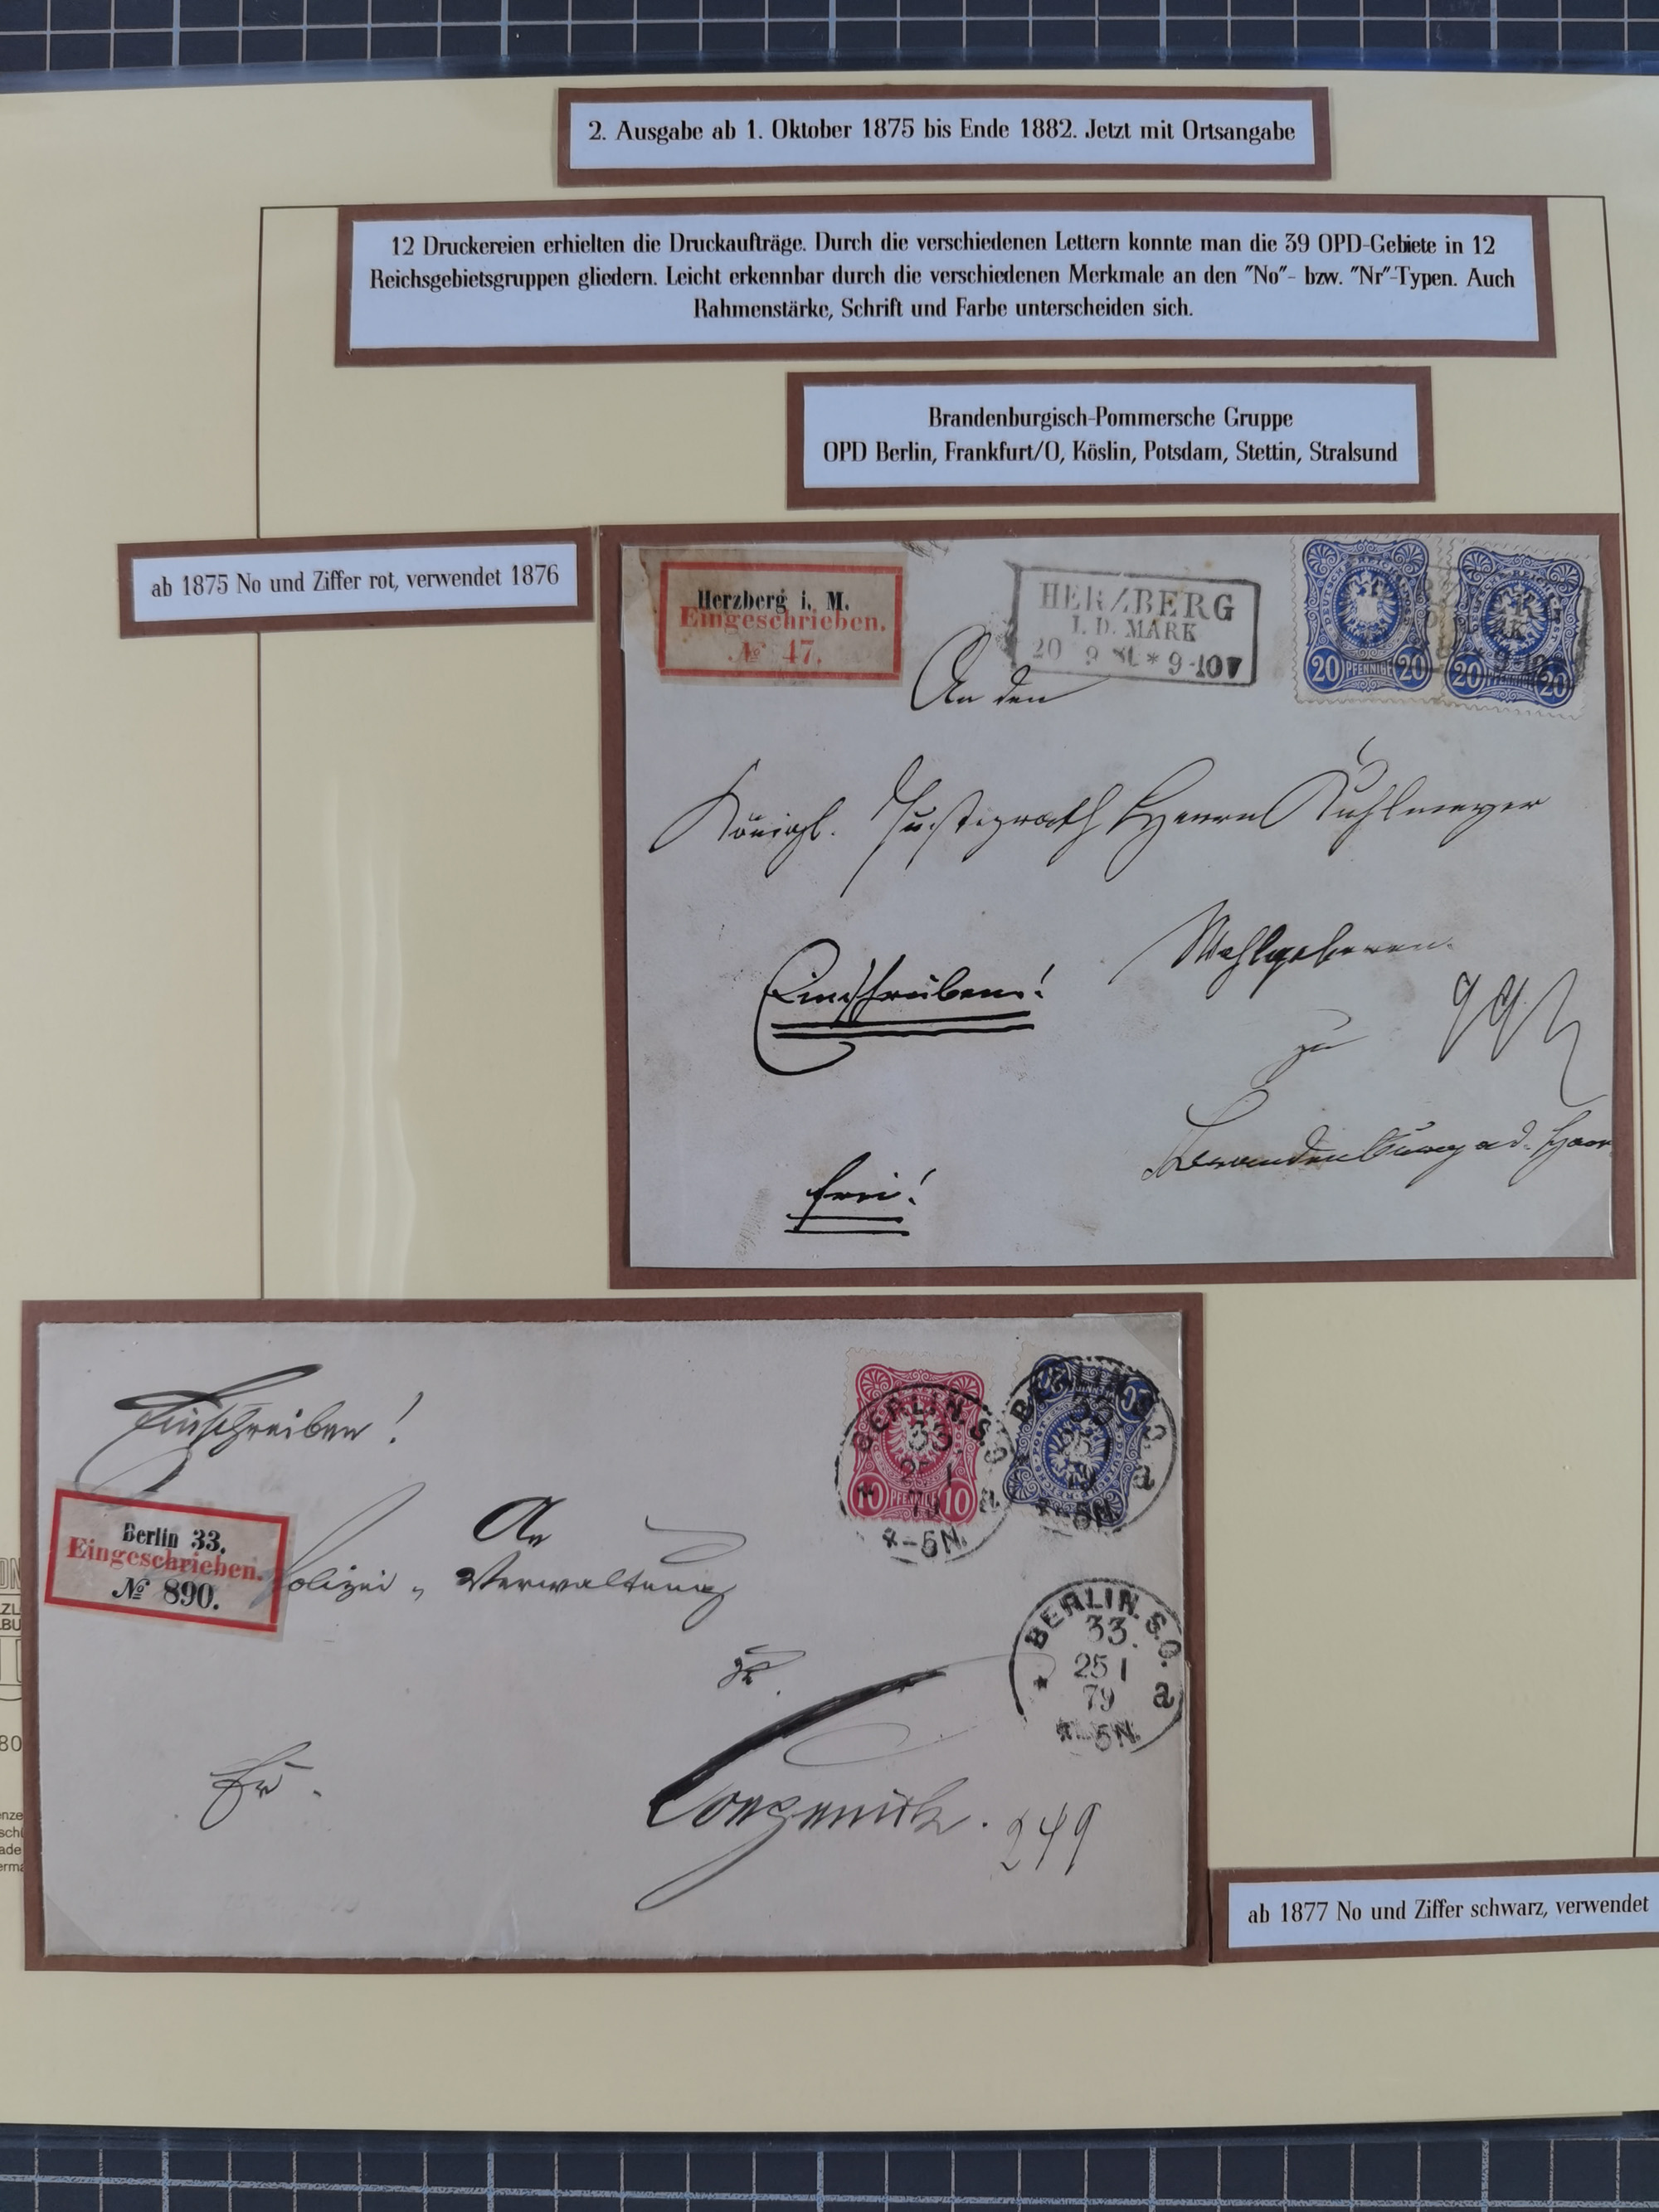 2. Ausgabe ab 1. Oktober 1875 bis Ende 1882. Jetzt mit Ortsangabe
12 Druckereien erhielten die Druckaufträge. Durch die verschiedenen Lettern konnte man die 39 OPD-Gebiete in 12
Reichsgebietsgruppen gliedern. Leicht erkennbar durch die verschiedenen Merkmale an den "No"- bzw. "Nr"-Typen. Auch
Rahmenstärke, Schrift und Farbe unterscheiden sich.
Brandenburgisch-Pommersche Gruppe
OPD Berlin, Frankfurt/O, Köslin, Potsdam, Stettin, Stralsund
ab 1875 No und Ziffer rot, verwendet 1876
Herzberg i. M.
Eingeschrieben.
No 47.
HERZBERG
I. D. MARK
20 9 * 9-10V
20 PFENNIG 20
20 20
An den
Königl. Justizrath Herrn Kuhlmeyer
Wohlgeboren.
Einschreiben!
zu
Brandenburg a d. Hav
frei!
Einschreiben!
10 PFENNIG 10
BERLIN. S.O.
33.
BERLIN
Berlin 33.
Eingeschrieben.
No 890.
An
Polizei-Verwaltung
BERLIN. S.O.
33.
25 1
79 a
5N.
249
ab 1877 No und Ziffer schwarz, verwendet